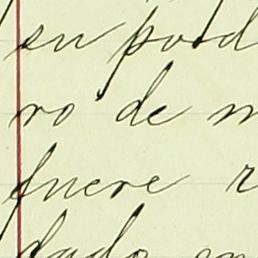 su pod
ro de m
fuere r
dado en